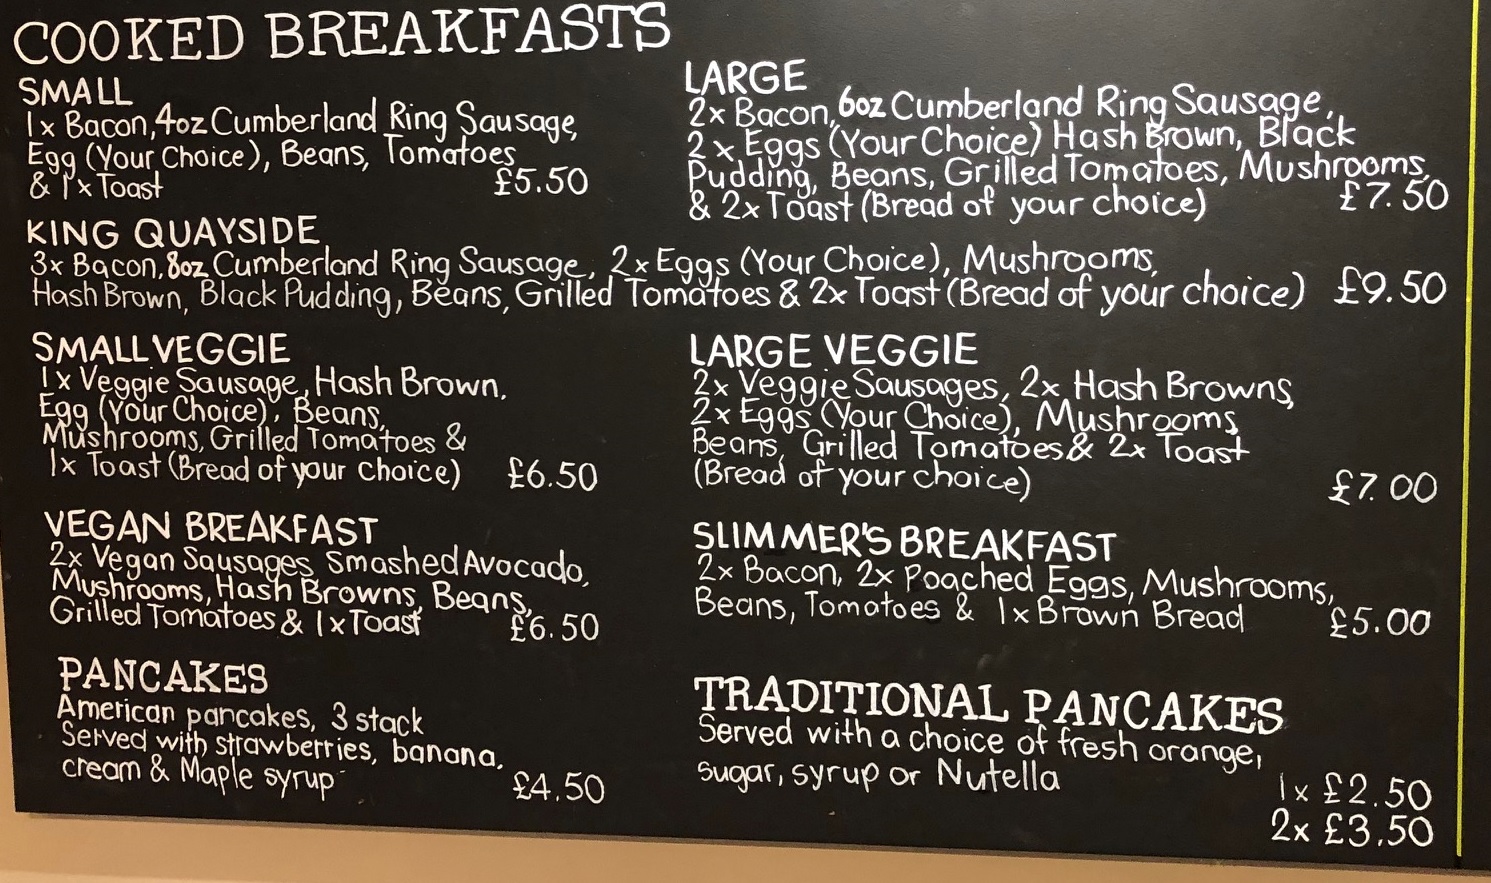 COOKED BREAKFASTS
SMALL
1x Bacon, 4oz Cumberland Ring Sausage,
Egg (Your Choice), Beans, Tomatoes
& 1x Toast £5.50
LARGE
2x Bacon, 6oz Cumberland Ring Sausage,
2x Eggs (Your Choice) Hash Brown, Black
Pudding, Beans, Grilled Tomatoes, Mushrooms,
& 2x Toast (Bread of your choice) £7.50
KING QUAYSIDE
3x Bacon, 8oz Cumberland Ring Sausage, 2x Eggs (Your Choice), Mushrooms,
Hash Brown, Black Pudding, Beans, Grilled Tomatoes & 2x Toast (Bread of your choice) £9.50
SMALL VEGGIE
1x Veggie Sausage, Hash Brown,
Egg (Your Choice), Beans,
Mushrooms, Grilled Tomatoes &
1x Toast (Bread of your choice) £6.50
LARGE VEGGIE
2x Veggie Sausages, 2x Hash Browns,
2x Eggs (Your Choice), Mushrooms,
Beans, Grilled Tomatoes & 2x Toast
(Bread of your choice) £7.00
VEGAN BREAKFAST
2x Vegan Sausages, Smashed Avocado,
Mushrooms, Hash Browns, Beans,
Grilled Tomatoes & 1x Toast £6.50
SLIMMER'S BREAKFAST
2x Bacon, 2x Poached Eggs, Mushrooms,
Beans, Tomatoes & 1x Brown Bread £5.00
PANCAKES
American pancakes, 3 stack
Served with strawberries, banana,
cream & Maple syrup £4.50
TRADITIONAL PANCAKES
Served with a choice of fresh orange,
sugar, syrup or Nutella
1x £2.50
2x £3.50